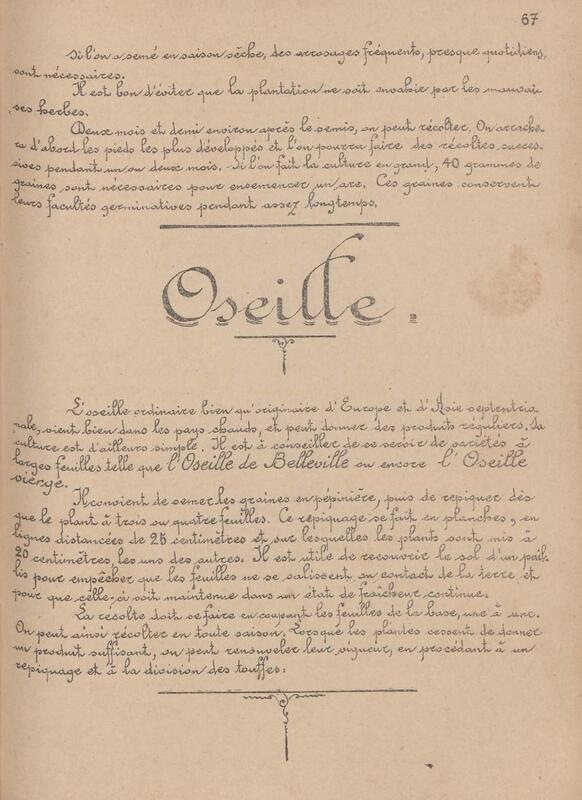 67
Si l'on a semé en saison sèche, des arrosages fréquents, presque quotidiens,
sont nécessaires.
Il est bon d'éviter que la plantation ne soit envahir par les mauvai-
ses herbes.
Deux mois et demi environ après le semis, on peut récolter. On arrache-
ra d'abord les pieds les plus développés et l'on pourra faire des récoltes succes-
sives pendant un ou deux mois. Si l'on fait la culture en grand, 40 grammes de
graines sont nécessaires pour ensemencer un are. Ces graines conservent
leurs facultés germinatives pendant assez longtemps.
Oseille.
L'oseille ordinaire bien qu'originaire d'Europe et d'Asie septentrio
nale, vient bien dans les pays chauds, et peut donner des produits réguliers. Sa
culture est d'ailleurs simple. Il est à conseiller de se servir de variétés à
larges feuilles telle que l'Oseille de Belleville ou encore l'Oseille
vierge.
Il convient de semer les graines en pépinière, puis de repiquer dès
que le plant à trois ou quatre feuilles. Ce repiquage se fait en planches, en
lignes distancées de 25 centimètres et sur lesquelles les plants sont mis à
20 centimètres, les uns des autres. Il est utile de recouvrir le sol d'un pail-
lis pour empêcher que les feuilles ne se salissent au contact de la terre et
pour que celle-ci soit maintenue dans un état de fraîcheur continue.
La récolte doit se faire en coupant les feuilles de la base, une à une.
On peut ainsi récolter en toute saison. Lorsque les plantes cessent de donner
un produit suffisant, on peut renouveler leur vigueur, en procédant à un
repiquage et à la division des touffes.